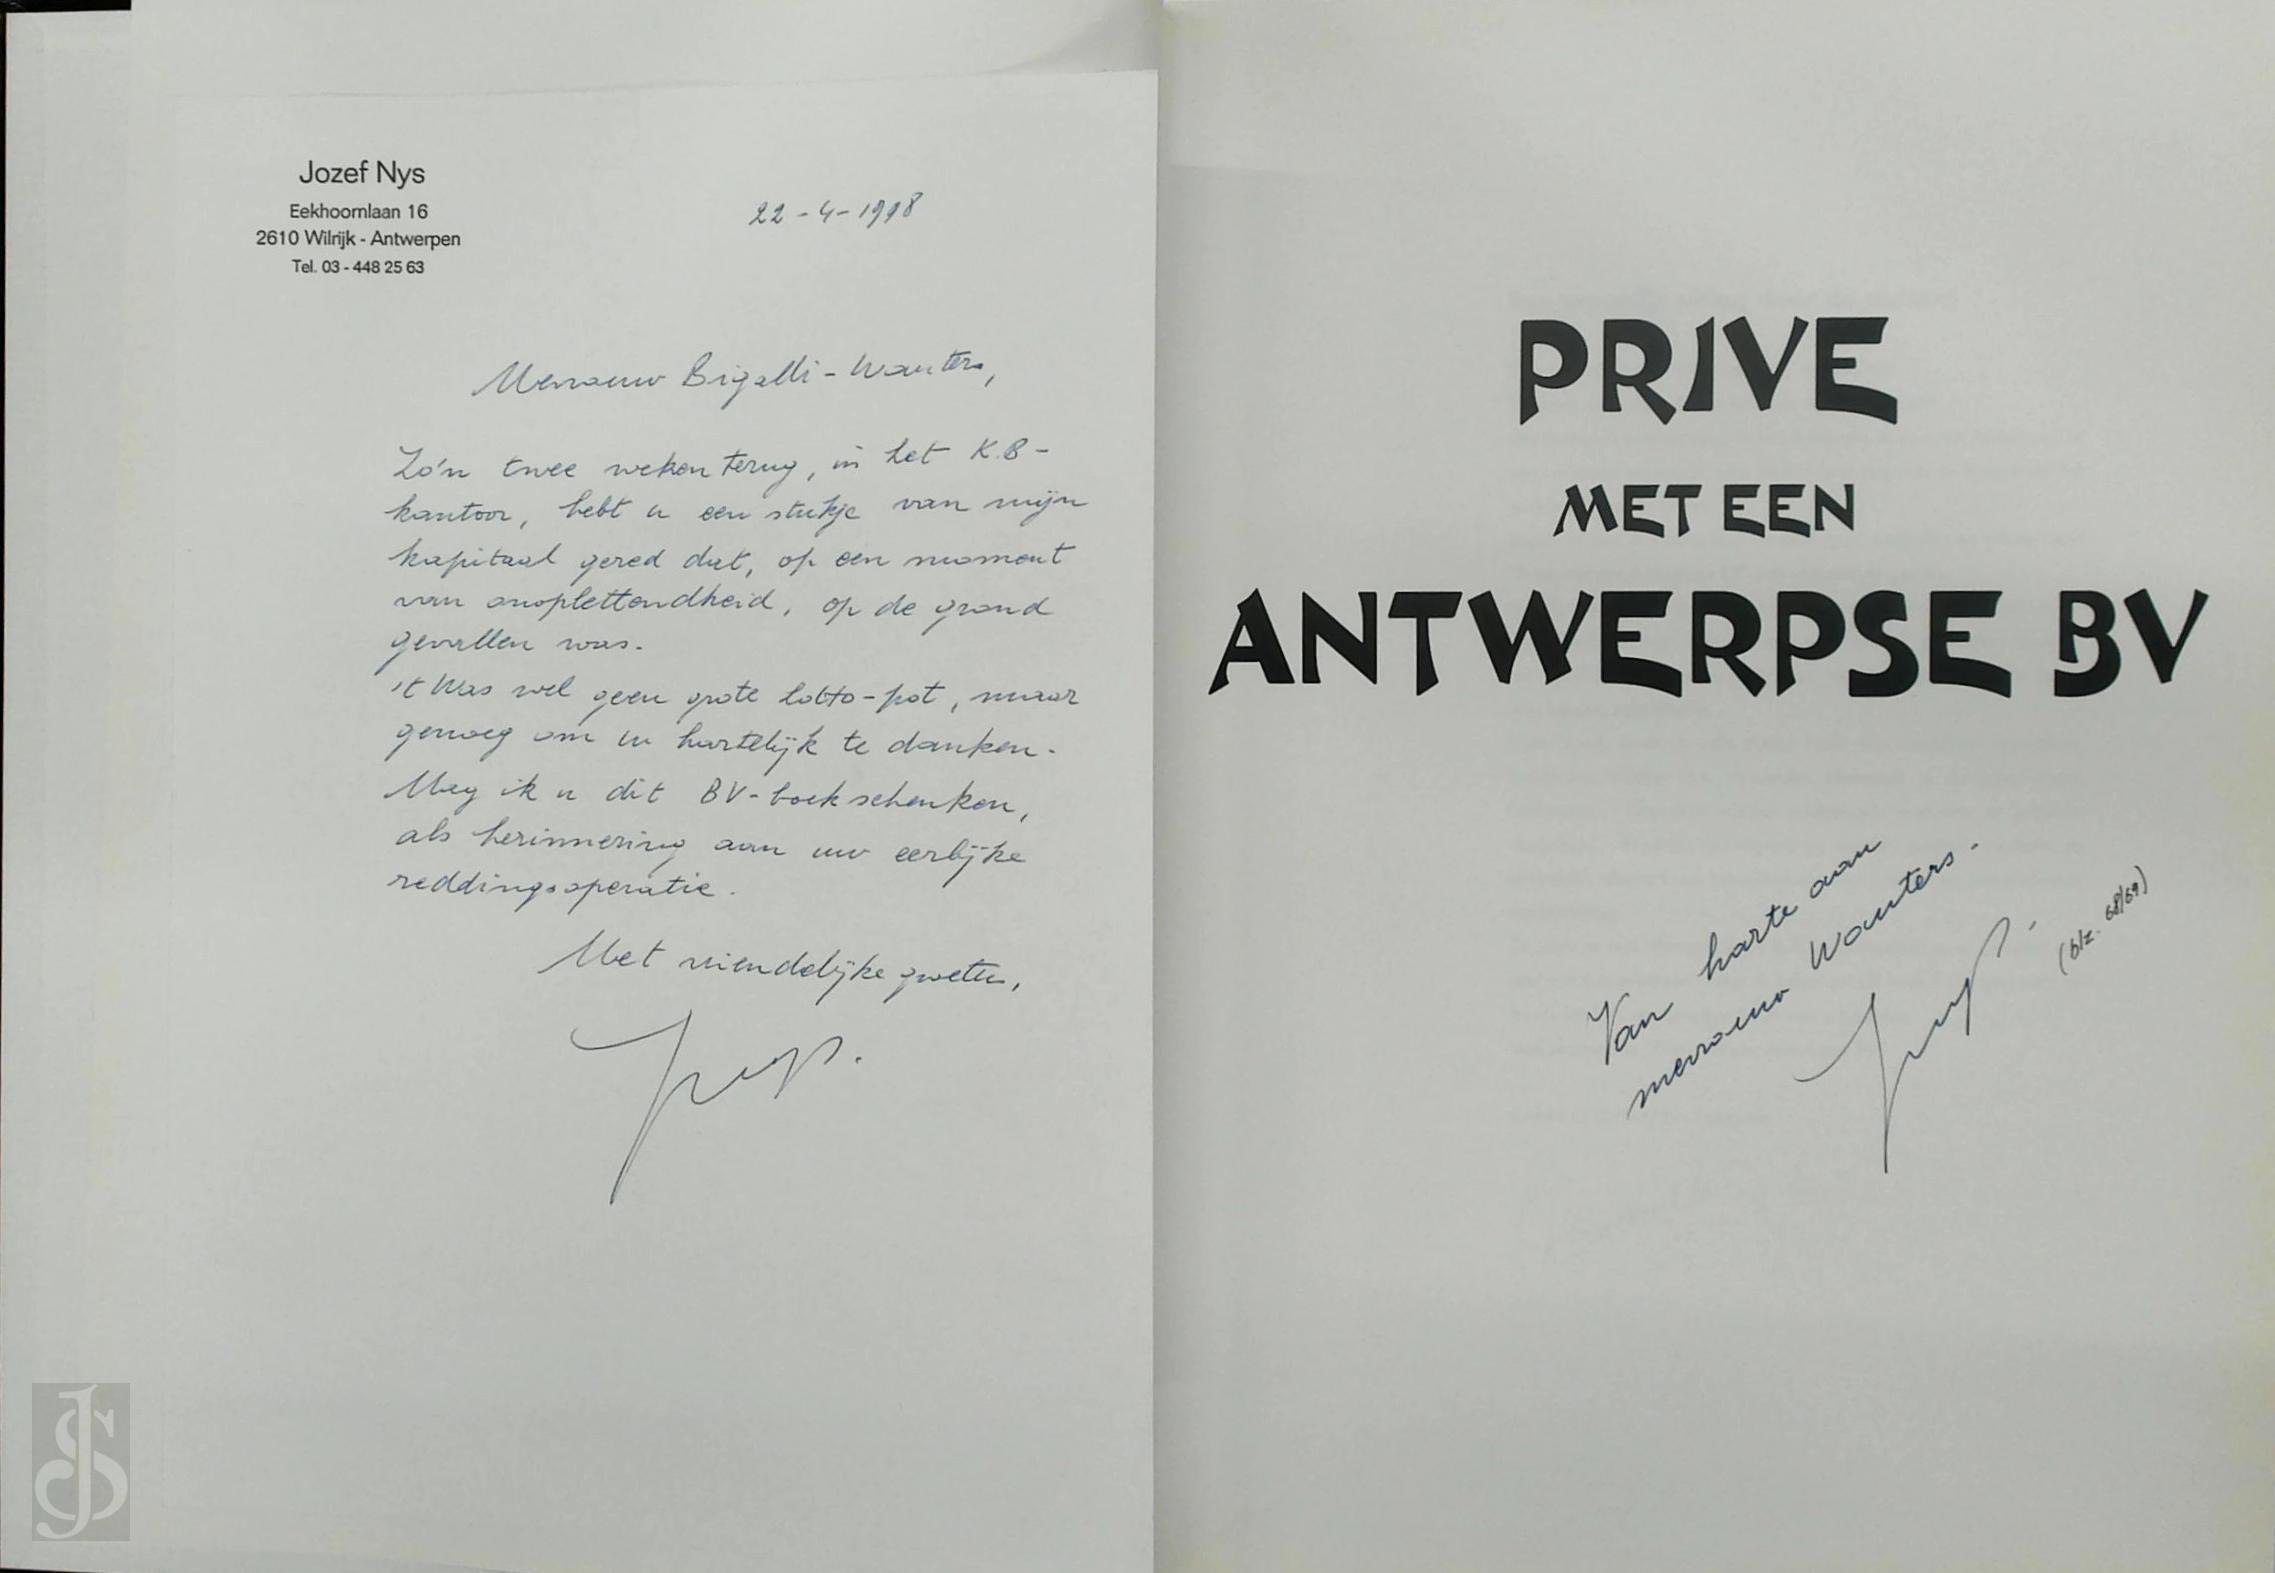 Jozef Nys
Eekhoornlaan 16
2610 Wilrijk - Antwerpen
Tel. 03 - 448 25 63
22-4-1998
Mevrouw Bigalli-Wauters,
Zo'n twee weken terug, in het K.B-
kantoor, hebt u een stukje van mijn
kapitaal gered dat, op een moment
van onoplettendheid, op de grond
gevallen was.
't Was wel geen grote lotto-pot, maar
genoeg om u hartelijk te danken.
Mag ik u dit BV-boek schenken,
als herinnering aan uw eerlijke
reddingsoperatie.
Met vriendelijke groeten,
PRIVE
MET EEN
ANTWERPSE BV
Van harte aan
mevrouw Wauters.
(blz. 68/69)